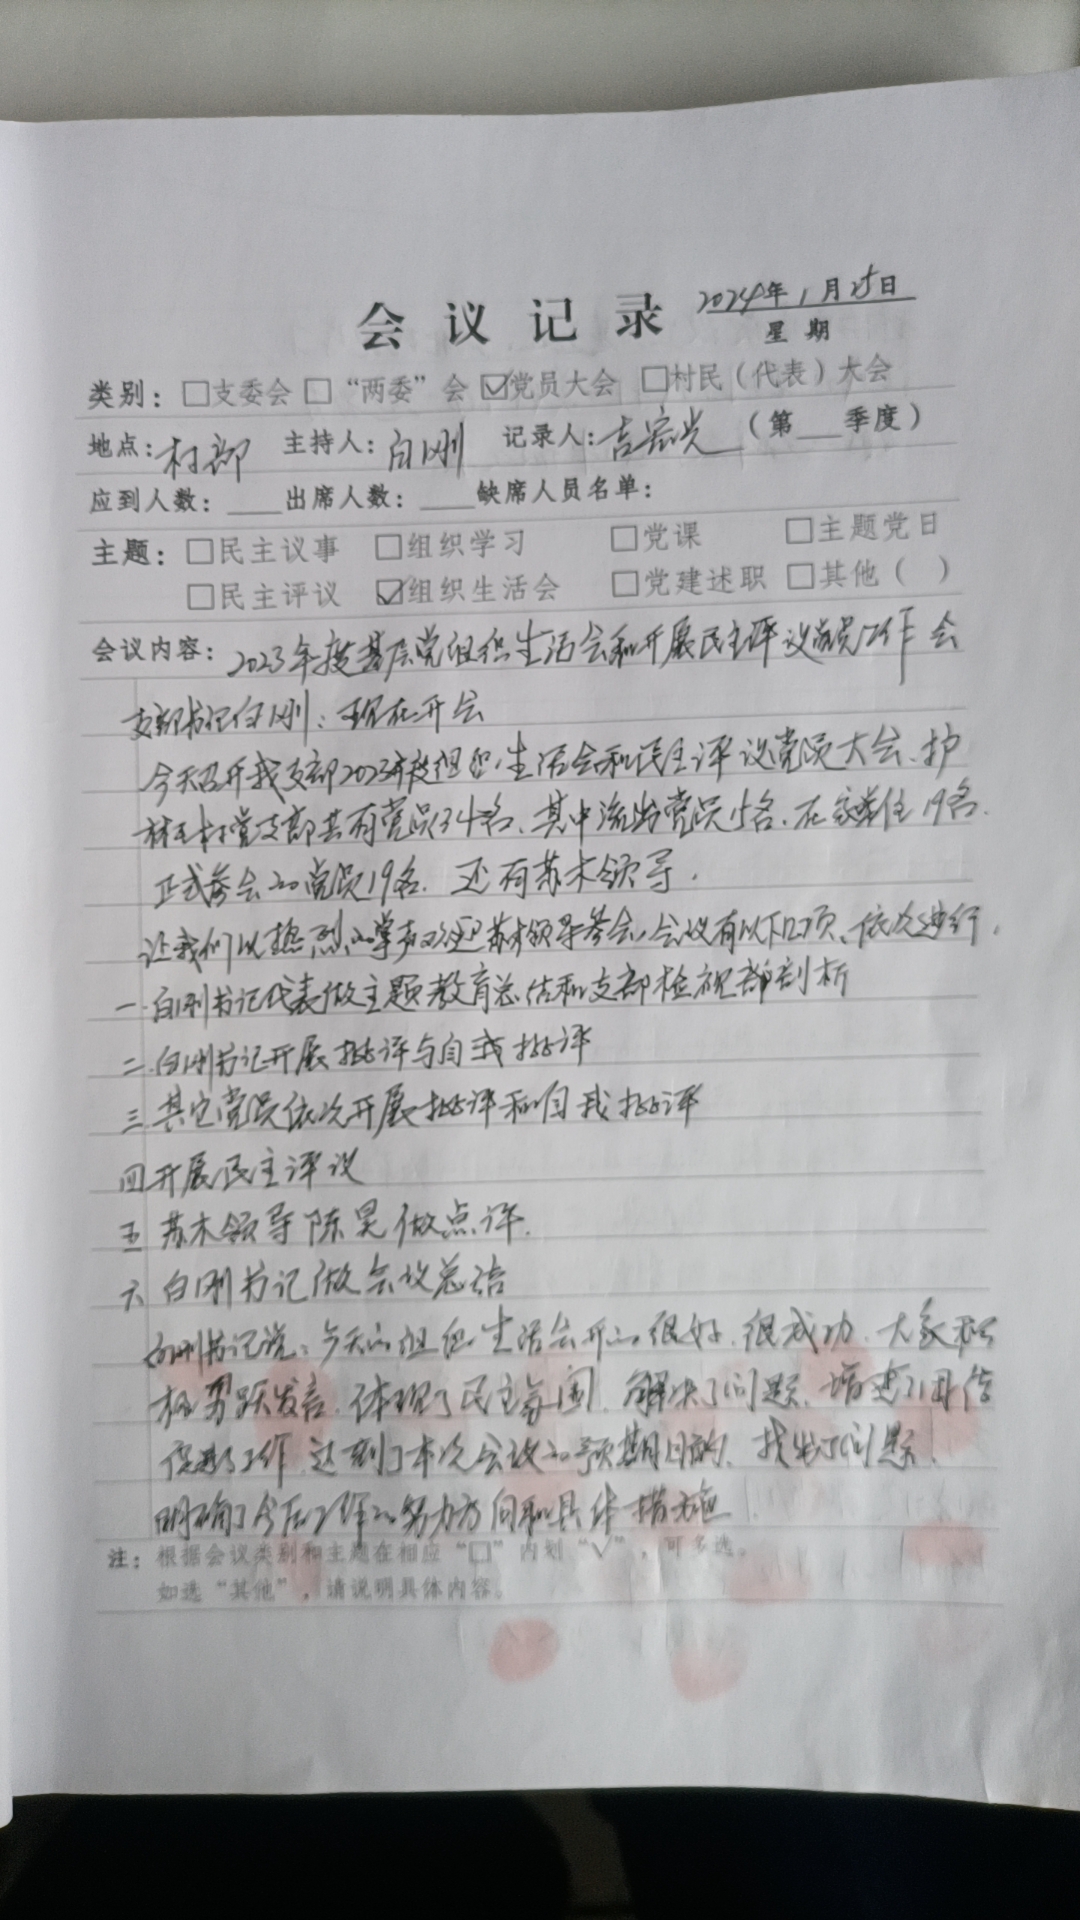 会议记录 2024年1月25日
星期
类别：□支委会 □“两委”会 ☑党员大会 □村民（代表）大会
地点：村部 主持人：白刚 记录人：吉宏光 （第___季度）
应到人数：____出席人数：____缺席人员名单：
主题：□民主议事 □组织学习 □党课 □主题党日
□民主评议 ☑组织生活会 □党建述职 □其他（ ）
会议内容：2023年度基层党组织生活会和开展民主评议党员工作会
支部书记白刚：现在开会
今天召开我支部2023年度组织生活会和民主评议党员大会、护
林村党支部共有党员34名、其中流出党员15名、在家常住19名.
正式参会的党员19名. 还有苏木领导.
让我们以热烈的掌声欢迎苏木领导参会，会议有以下六项、依次进行.
一 白刚书记代表做主题教育总结和支部检视剖析
二 白刚书记开展批评与自我批评
三 其它党员依次开展批评和自我批评
四 开展民主评议
五 苏木领导陈昊做点评.
六 白刚书记做会议总结
白刚书记说：今天的组织生活会开的很好.很成功.大家积
极踊跃发言.体现了民主氛围.解决了问题、增进了团结
促进了工作 达到了本次会议的预期目的、找出了问题、
明确了今后工作的努力方向和具体措施
注：根据会议类别和主题在相应“□”内划“√”，可多选。
如选“其他”，请说明具体内容。